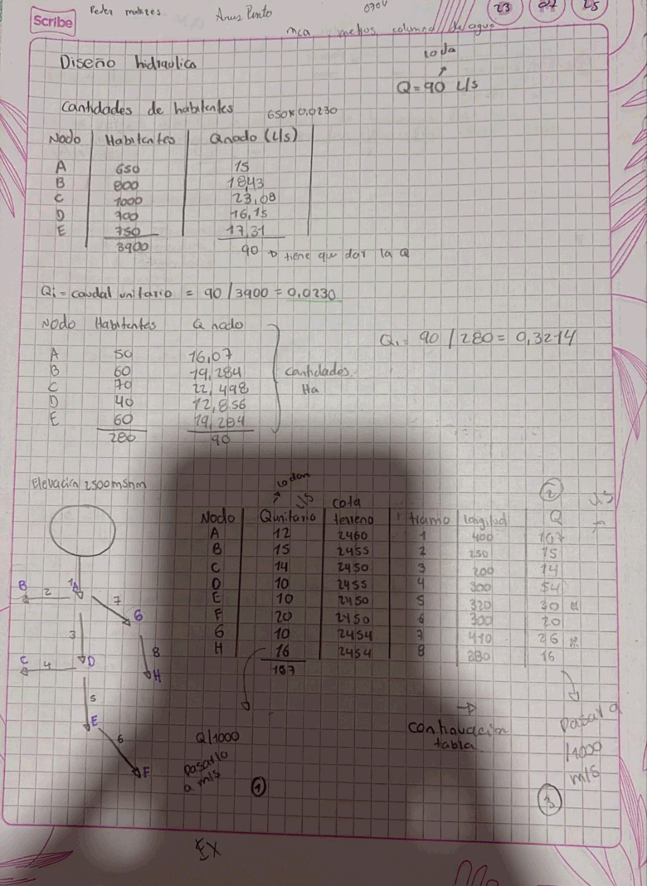 Scribe
23 07 25
mca metros columna de agua
Diseño hidraulica
loda
Q = 90 L/s
Cantidades de habitentes 650 x 0,0230
Nodo Habitentes Qnodo (L/s)
A 650 15
B 800 18,43
C 1000 23,08
D 700 16,15
E 750 17,31
3900 90 → tiene que dar la Q
Qi = caudal unitario = 90 / 3900 = 0,0230
Nodo Habitentes Q nodo
Qi = 90 / 280 = 0,3214
A 50 16,07
B 60 19,284
C 70 22,498
D 40 12,856
E 60 19,284
280 90
cantidades
Ha
Elevación 2500msnm
Nodo Qunitario L/S cota terreno tramo longitud Q L/S
A 12 2460 1 400 107
B 15 2455 2 250 15
C 14 2450 3 200 14
D 10 2455 4 300 54
E 10 2450 5 320 30
F 20 2450 6 300 20
G 10 2454 7 410 26
H 16 2454 8 280 16
107
②
1
B 2 A 7 G
3 8
C 4 D H
5
E 6
F
Q/1000
pasarlo
a m/s
①
→
continuación
tabla
pasar a
/1000
m/s
③